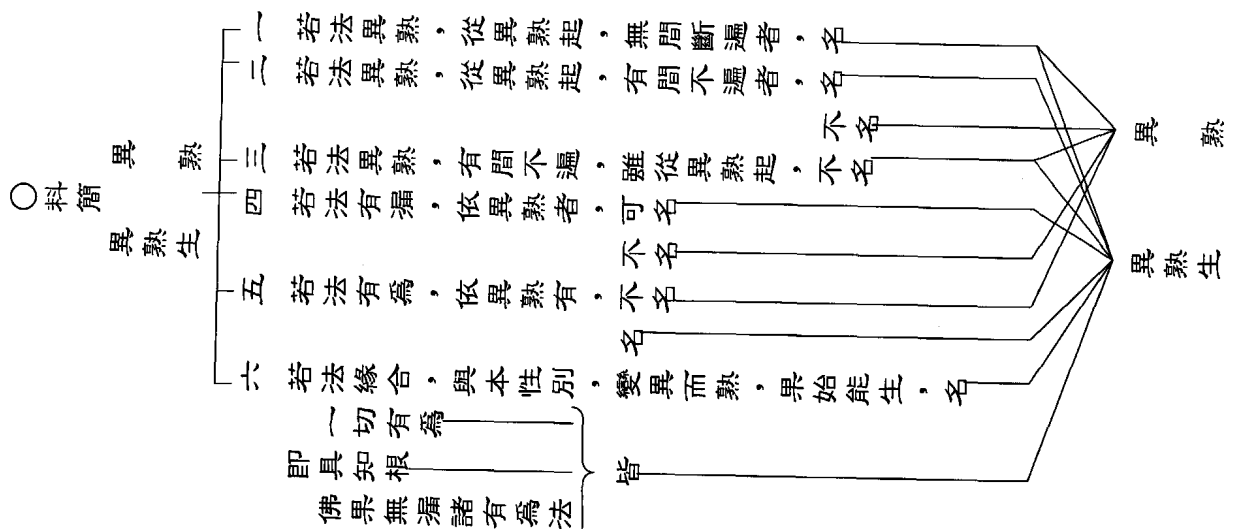 ○料簡
異熟
異熟生
一 若法異熟，從異熟起，無間斷遍者，名
二 若法異熟，從異熟起，有間不遍者，名
不名
三 若法異熟，有間不遍，雖從異熟起，不名
四 若法有漏，依異熟者，可名
不名
五 若法有為，依異熟有，不名
名
六 若法緣合，與本性別，變異而熟，果始能生，名
一切有爲
即具知根
佛果無漏諸有爲法
皆
異熟
異熟生